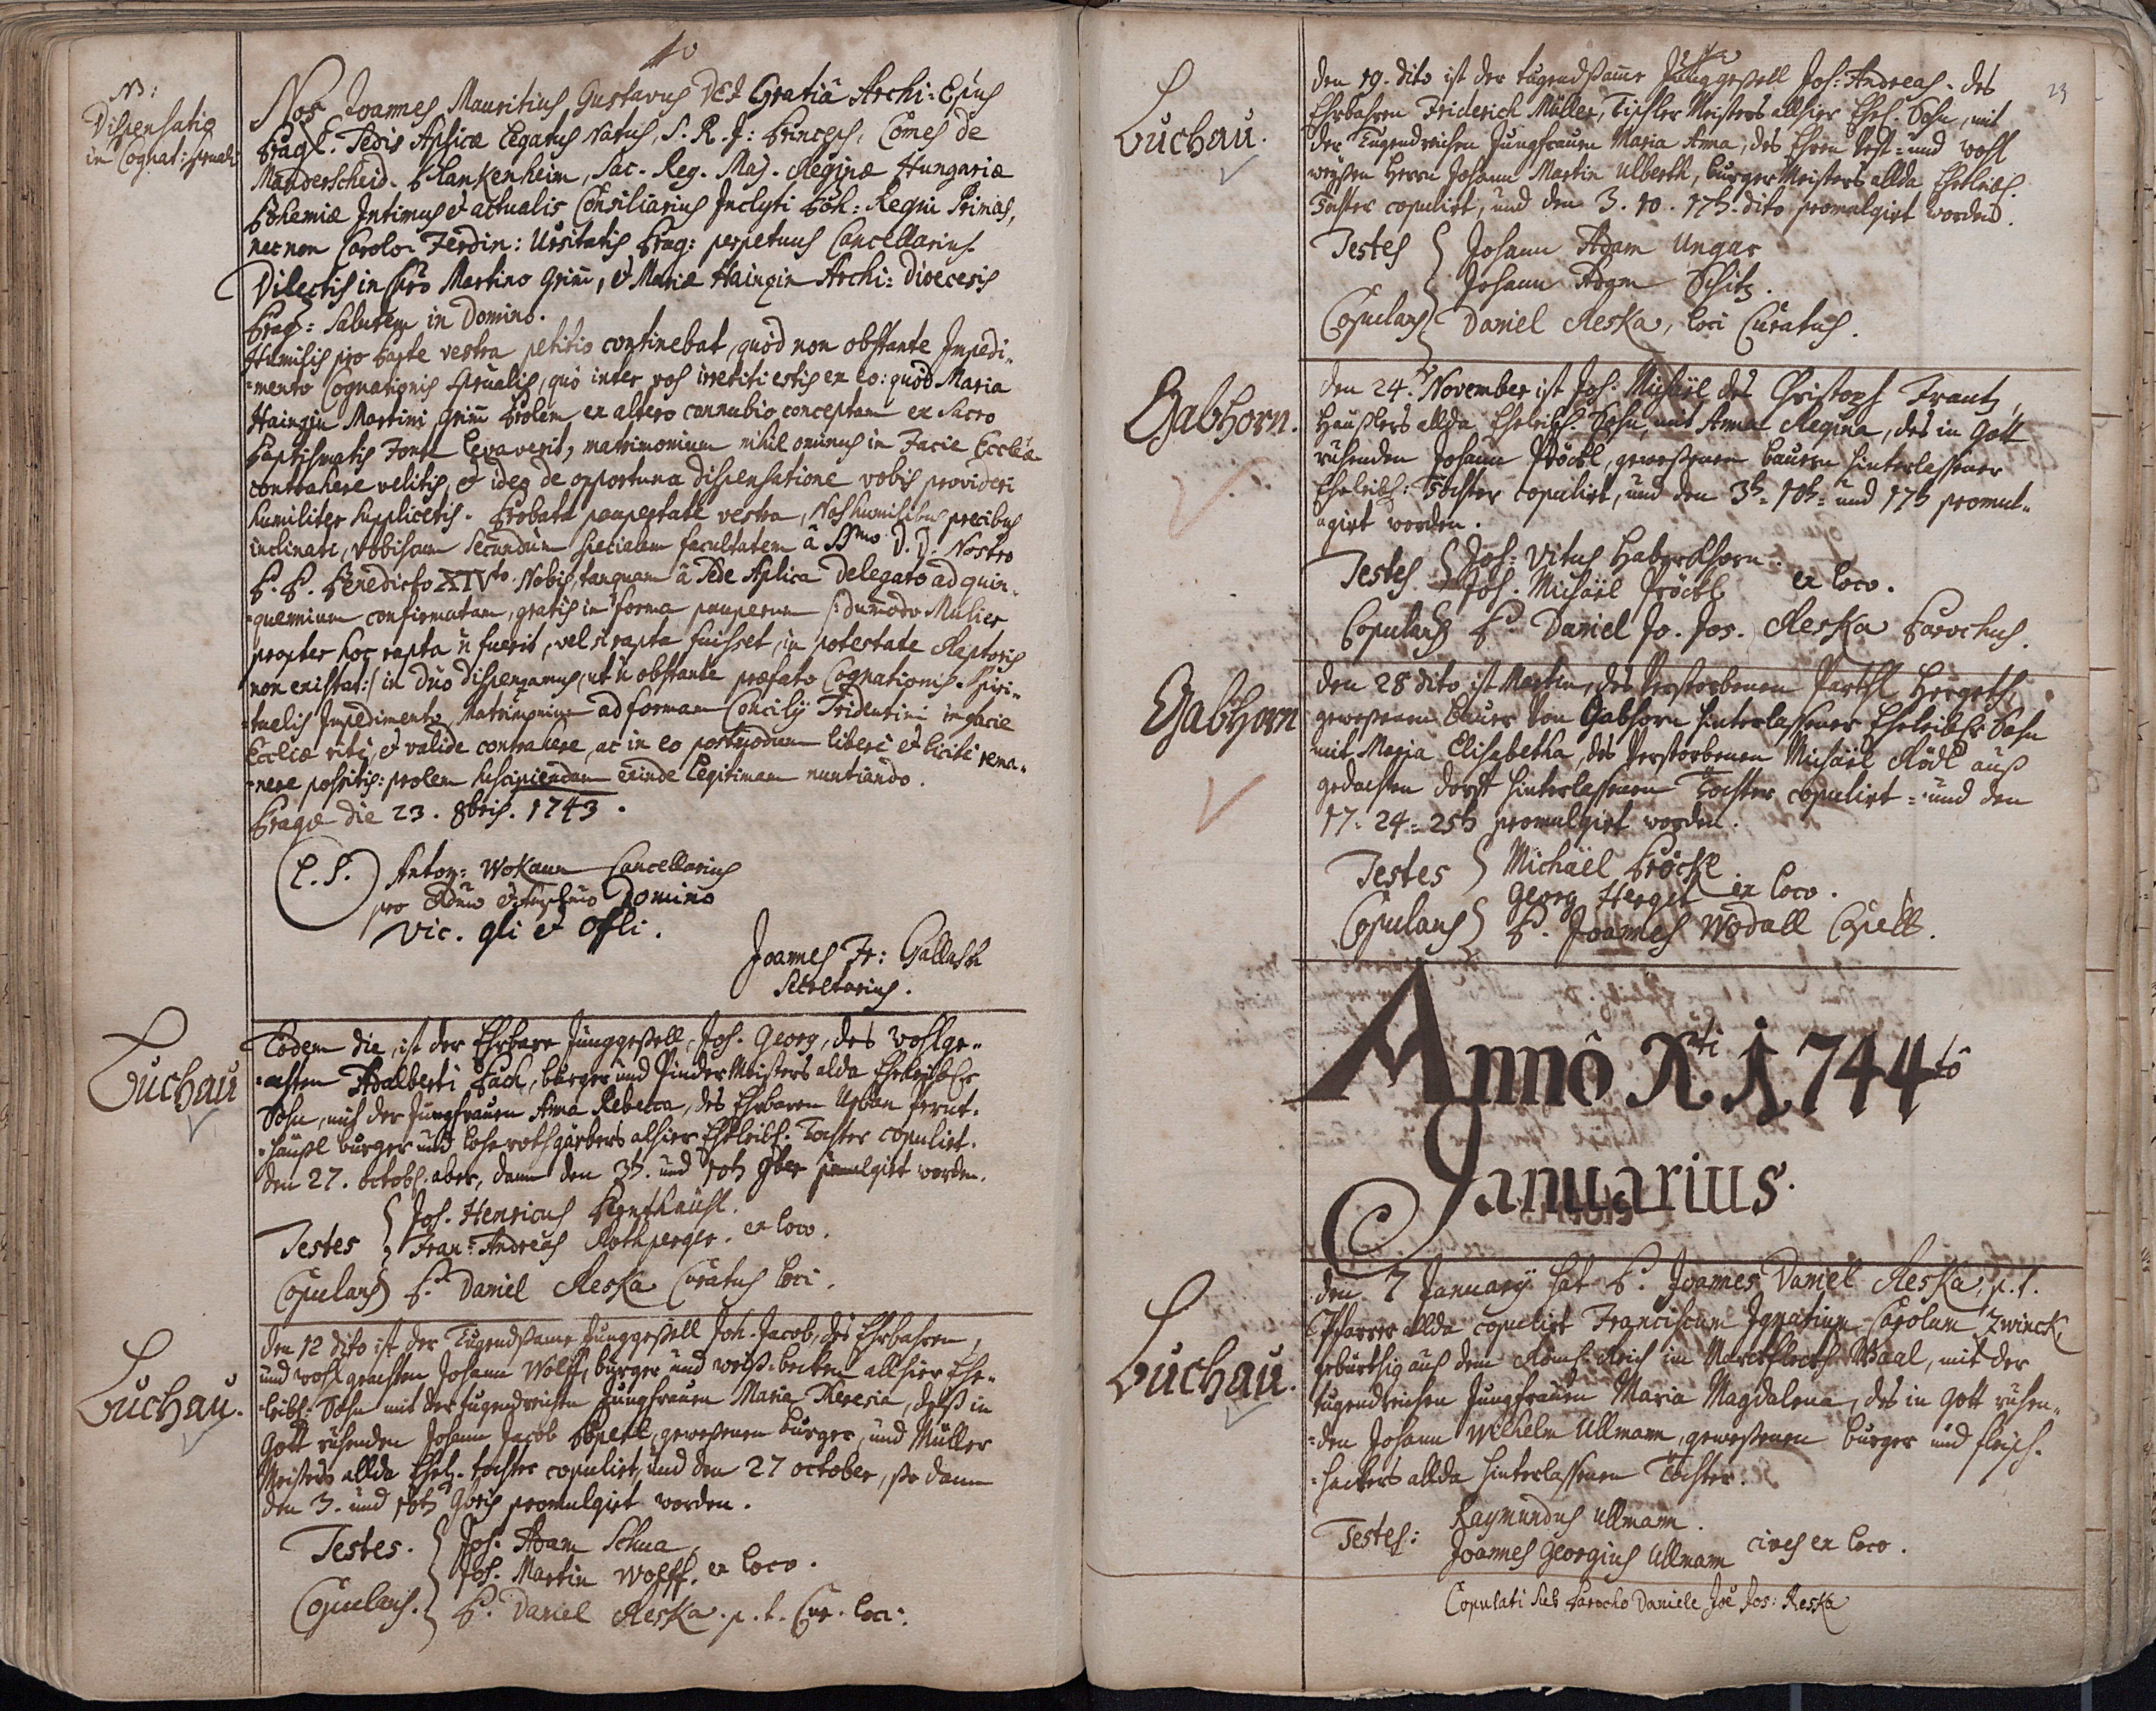 10
NB:
Dispensatio
in Cognat: sprituali
Nos Joannes Mauritius Gustavus DEI Gratiâ Archi-Epus
Prag: Sedis Aplicæ Legatus Natus, S. R. I: Princeps, Comes de
Manderscheid-Blankenheim, Sac. Reg. Maj. Reginæ Hungariæ
Bohemiæ Intimus et actualis Consiliarius Inclyti Boh: Regni Primas,
nec non Carolo-Ferdin: Ursitatis Prag: perpetuus Cancellarius
Dilectis in Chro Martino Grim̄, et Mariæ Hainzin Archi-Dioecesis
Prag: Salutem in Domino.
Humilis pro parte vestra petitio continebat, quòd non obstante Impedi-
-mento Cognationis sprualis, quò inter vos irretiti estis ex eo: quòd Maria
Hainzin Martini Grim̄ Prolem ex altero connubio conceptam ex Sacro
Baptismatis Fonte levaverit, matrimonium nihilominus in Facie Eccliæ
contrahere velitis, et ideo de opportuna dispensatione vobis provideri
humiliter supplicetis. Probata paupertate vestra, Nos humilibus precibus
inclinati, vobiscum secundum specialem facultatem â SSmo D. D. Nostro
P. P. Benedicto XIVto Nobis, tanquam â Sede Aplica Delegato ad quin-
-quennium confirmatam, gratis in forma pauperum /: dum̄odo Mulier
propter hoc rapta n̄ fuerit, vel si rapta fuisset, in potestate Raptoris
non existat:/ in Dño dispensamus, ut n̄ obstante præfato Cognationis Spiri-
-tualis Impedimento, Matrimonium ad formam Concilij Tridentini in facie
Eccliæ ritè, et validè contrahere, ac in eo postmodum liberè et licitè rema-
-nere possitis: prolem suscipiendam exinde legitimam nuntiando.
Pragæ die 23. 8bris. 1743.
L. S. Anton: Wokaun Cancellarius
pro Domino
Vic. gli et Offli.
Joannes Fr: Gallasch
Secretarius.
Luchau
Eodem die, ist der Ehrbare Junggeßell, Joh. Georg, des wohlge-
-achten Adalberti Pach, burger und Meisters alda Eheleibl
Sohn, mit der Jungfrauen Anna Rebecca, des Ehrbaren Urban
-häußl burger und lohe rothgärbers alhier Eheleibl. Tochter copulirt.
den 27. octobs. aber, dann den 3t. und 10th 9ber promulgirt worden.
Testes { Joh. Henricus
Fran: Andreas Rothperger. ex loco.
Copulans P. Daniel Reska Curatus loci.
Luchau.
den 12 dito ist der Tugendsame Junggeßell Joh. Jacob, des Ehrbahren,
und wohl geachten Johann Wolff, burger und weiß-becken allhier Ehe-
-leibl. Sohn mit der tugendreichen Jungfrauen Maria Theresia, deß in
Gott ruhenden Johann Jacob geweßenen burger, und Müller
Meisters allda Ehel. tochter copulirt, und den 27 october, so dann
den 3. und 10th 9bris promulgirt worden.
Testes. { Joh. Adam Schua
Joh. Martin Wolff. ex loco.
Copulans. } P. Daniel Reska. p. t. Cur. loci.
23
Luchau.
den 19. dito ist der tugendsame Junggeßell Joh: Andreas. des
Ehrbahren Friderich Müller, Tischler Meisters allhier Ehel. Sohn, mit
der Tugendreichen Jungfrauen Maria Anna, des Ehren Vest- und wohl
weysen Herrn Johann Martin Ulberth, burger Meisters allda Eheleibl.
Tochter copulirt, und den 3. 10. 17th. dito promulgirt worden.
Testes { Johann Adam Ungar
Johann Adam Schitz.
Copulans { Daniel Reska, loci Curatus.
Gabhorn.
den 24. November ist Joh: Michaël des Christoph Frantz,
Häußlers allda Eheleibl. Sohn, mit Anna Regina, des in Gott
ruhenden Johann Pröckl, geweßenen bauern hinterlassener
Eheleibl: Tochter copulirt, und den 3th- 10th- und 17th promul-
-girt worden.
Testes { Joh: Vitus Haberkhorn
Joh. Michaël Pröckl ex loco.
Copulans P. Daniel Jo. Jos. Reska Parochus.
Gabhorn
den 28 dito ist Martin, des Verstorbenen Hergeth
geweßenen Bauer von Gabhorn hinterlassener Eheleibl Sohn
mit Maria Elisabetha, des Verstorbenen Michäel Rödl auß
gedachten dorff hinterlassenen Tochter copulirt- und den
17- 24- 25th promulgirt worden.
Testes } Michäel Pröckl
Georg Herget ex loco.
Copulans } P. Joannes Wodall Capell.
Annô Xti 1744tô
Januarius.
Luchau.
den 7 January hat P. Joannes Daniel Reska, p. t.
Pfarrer allda copulirt Franciscum Ignatium Carolum Zwinck,
gebürthig aus dem Römis. Reich im Marckfleckh Waal, mit der
tugendreichen Jungfrauen Maria Magdalena, des in Gott ruhen-
-den Johann Wilhelm Ullmann, geweßenen burger und fleisch-
-hackers allda hinterlassenen Tochter.
Testes: Raymundus Ullmann.
Joannes Georgius Ullmann cives ex loco.
Copulati sub Parocho Daniele Joe Jos: Reska